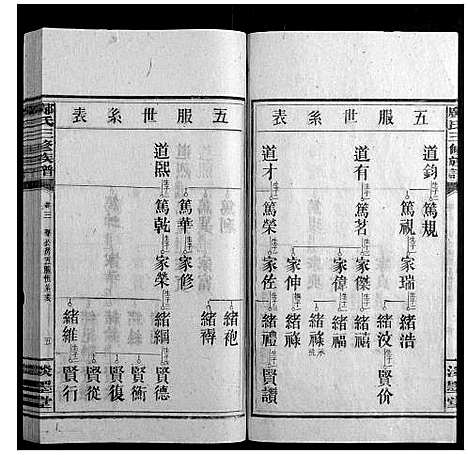 五服世系表
道鈞
篤規
篤視
家瑞
緒浩
緒汶
賢价
道有
篤茗
家傑
緒禧
家偉
緒福
道才
篤榮
家伸
緒祿
家佐
緒禮
賢讚
五服世系表
道熙
篤華
家修
緒袍
緒禱
篤乾
家榮
緒綱
賢德
賢衡
賢復
賢從
緒維
賢行
鄺氏三修族譜
卷三
五
淡墨堂